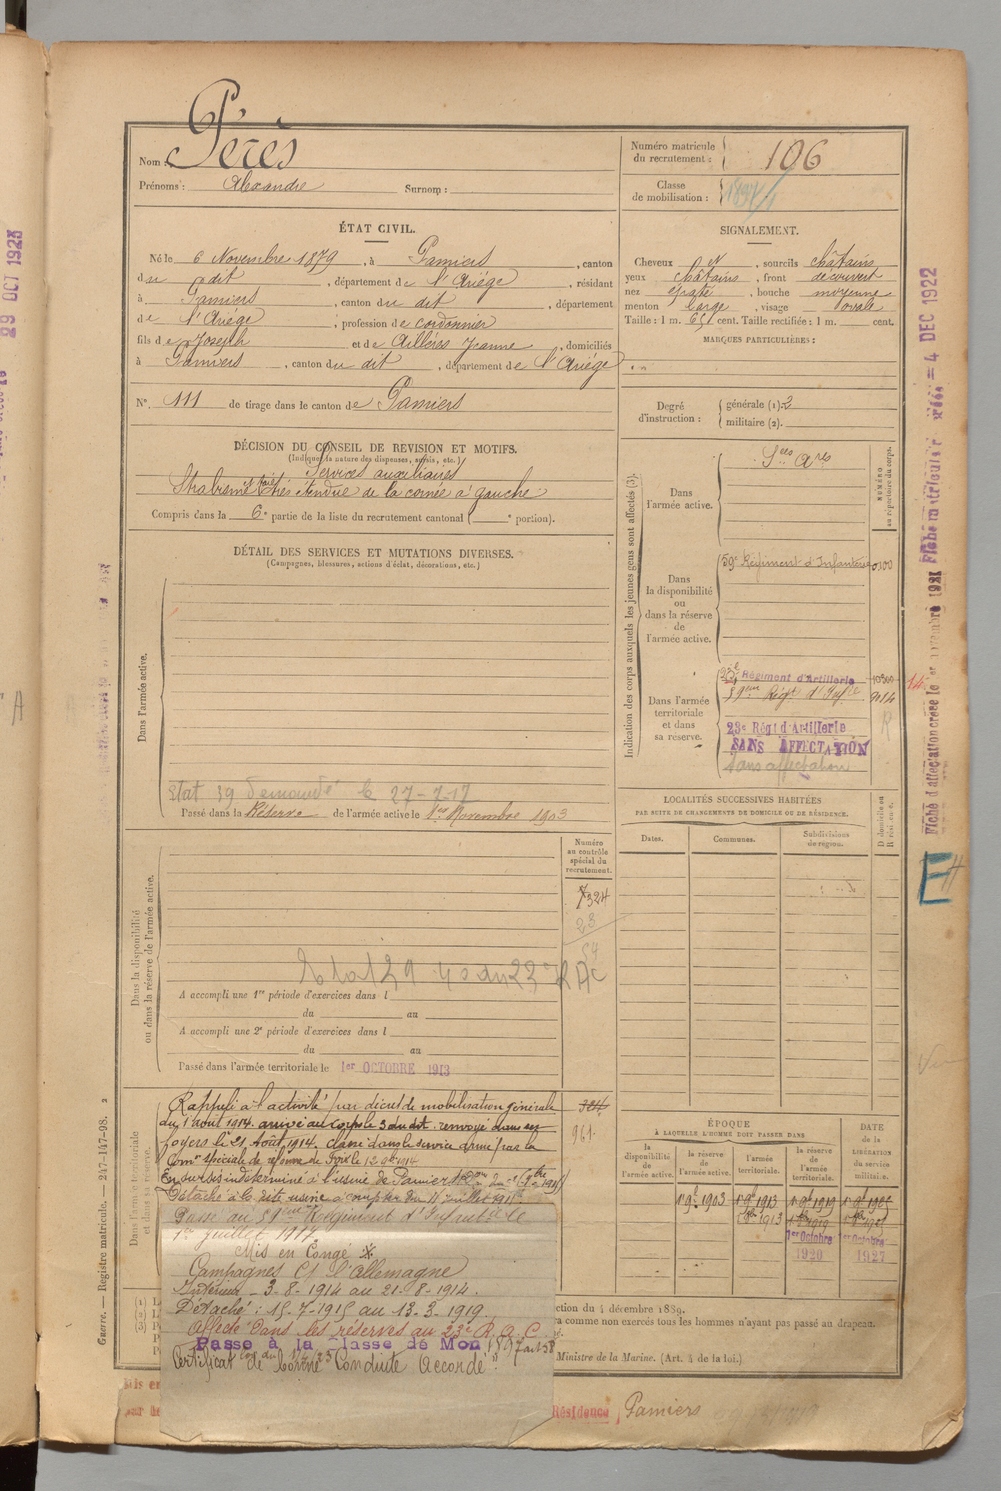 Nom : Pérès
Prénoms : Alexandre Surnom :
Numéro matricule du recrutement : 106
Classe de mobilisation : 1897
ÉTAT CIVIL.
Né le 6 Novembre 1879, à Pamiers, canton
du dit, département de l'Ariége, résidant
à Pamiers, canton du dit, département
de l'Ariége, profession de cordonnier
fils de Joseph et de Allères Jeanne, domiciliés
à Pamiers, canton du dit, département de l'Ariége
N° 111 de tirage dans le canton de Pamiers
SIGNALEMENT.
Cheveux N, sourcils châtains
yeux châtains, front découvert
nez épaté, bouche moyenne
menton large, visage ovale
Taille : 1 m. 65 cent. Taille rectifiée : 1 m. cent.
MARQUES PARTICULIÈRES :
Degré d'instruction : générale (1). 2
militaire (2).
DÉCISION DU CONSEIL DE REVISION ET MOTIFS.
(Indiquer la nature des dispenses, sursis, etc.)
Services auxiliaires
Strabisme taie très étendue de la cornée à gauche
Compris dans la 6e partie de la liste du recrutement cantonal ( e portion).
DÉTAIL DES SERVICES ET MUTATIONS DIVERSES.
(Campagnes, blessures, actions d'éclat, décorations, etc.)
Dans l'armée active.
Etat 39 demandé le 27-7-17
Passé dans la Réserve de l'armée active le 1er Novembre 1903
Indication des corps auxquels les jeunes gens sont affectés (3).
NUMÉRO au répertoire du corps.
Dans l'armée active.
Sces Ares
Dans la disponibilité ou dans la réserve de l'armée active.
59e Régiment d'Infanterie
Dans l'armée territoriale et dans sa réserve.
23e Régiment d'Artillerie
59eme Régt d'Infie
23e Régt d'Artillerie
SANS AFFECTATION
Sans affectation
14
R
LOCALITÉS SUCCESSIVES HABITÉES
PAR SUITE DE CHANGEMENTS DE DOMICILE OU DE RÉSIDENCE.
Dates. Communes. Subdivisions de région. D domicile ou R résidence.
Dans la disponibilité ou dans la réserve de l'armée active.
Numéro au contrôle spécial du recrutement.
7324
23
A accompli une 1re période d'exercices dans l
du au
A accompli une 2e période d'exercices dans l
du au
Passé dans l'armée territoriale le 1er OCTOBRE 1913
Dans l'armée territoriale et dans sa réserve.
Rappelé à l'activité par décret de mobilisation générale
du 1 août 1914. arrivé au corps le 3 du dit. renvoyé dans ses
foyers le 21 Août 1914. classé dans le service armé par la
Comon spéciale de réforme de Foix le
En sursis indéterminé à l'usine de Pamiers
Détaché à la dite usine à compter du 15 juillet 1915
Passé au 59eme Régiment d'Infanterie le
1er juillet 1917
Mis en Congé
Campagnes Ct l'Allemagne
Intérieur 3-8-1914 au 21-8-1914.
Détaché : 15-7-1915 au 13-3-1919
Affecté dans les réserves au 23e R.A.C.
Passé à la classe de Mob 1897 art 58
Certificat de Bonne Conduite Accordé
961
ÉPOQUE
À LAQUELLE L'HOMME DOIT PASSER DANS
la disponibilité de l'armée active. la réserve de l'armée active. l'armée territoriale. la réserve de l'armée territoriale.
DATE de la LIBÉRATION du service militaire.
1 9bre 1903 1 9bre 1913 1 9bre 1919 1 9bre 1925
1er Octobre 1920
1er Octobre 1927
ction du 4 décembre 1889.
ra comme non exercés tous les hommes n'ayant pas passé au drapeau.
Ministre de la Marine. (Art. 4 de la loi.)
Résidence Pamiers
Guerre. — Registre matricule. — 247-147-98. 2
29 OCT 1923
4 DEC 1922
E
A